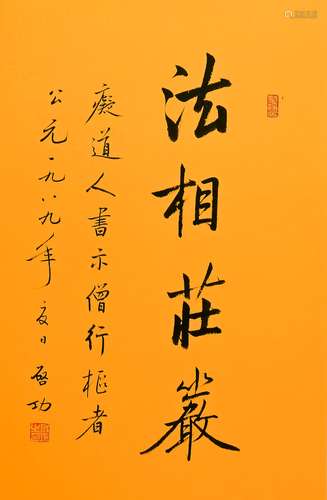 法相莊嚴
癡道人書示僧行樞者
公元一九八九年夏日啓功